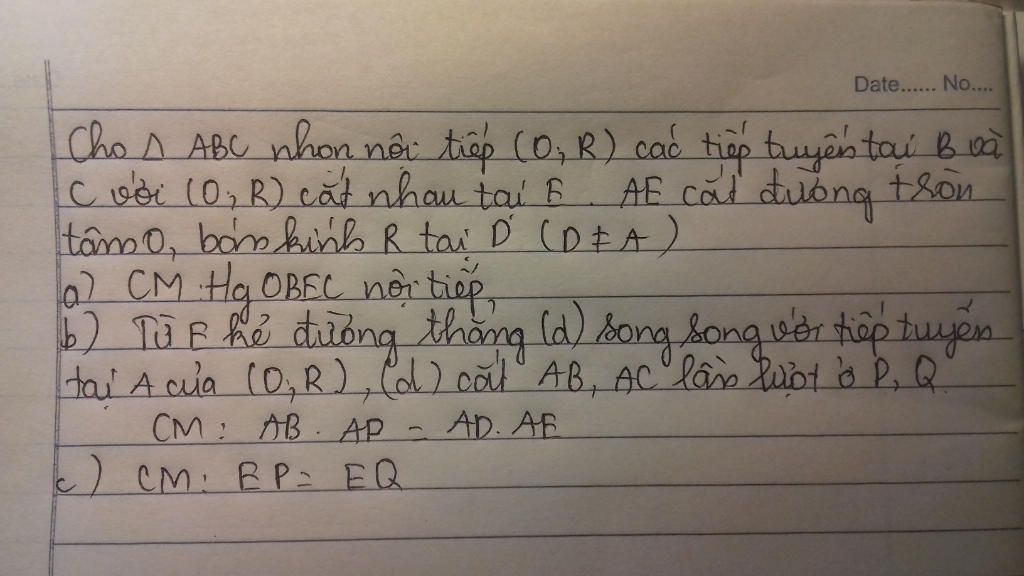 Date...... No....
Cho Δ ABC nhọn nội tiếp (O; R) các tiếp tuyến tại B và
C với (O; R) cắt nhau tại E. AE cắt đường tròn
tâm O, bán kính R tại D (D ≠ A)
a) CM: Hg OBEC nội tiếp,
b) Từ E kẻ đường thẳng (d) song song với tiếp tuyến
tại A của (O, R), (d) cắt AB, AC lần lượt ở P, Q
CM: AB. AP = AD. AE
c) CM: EP = EQ